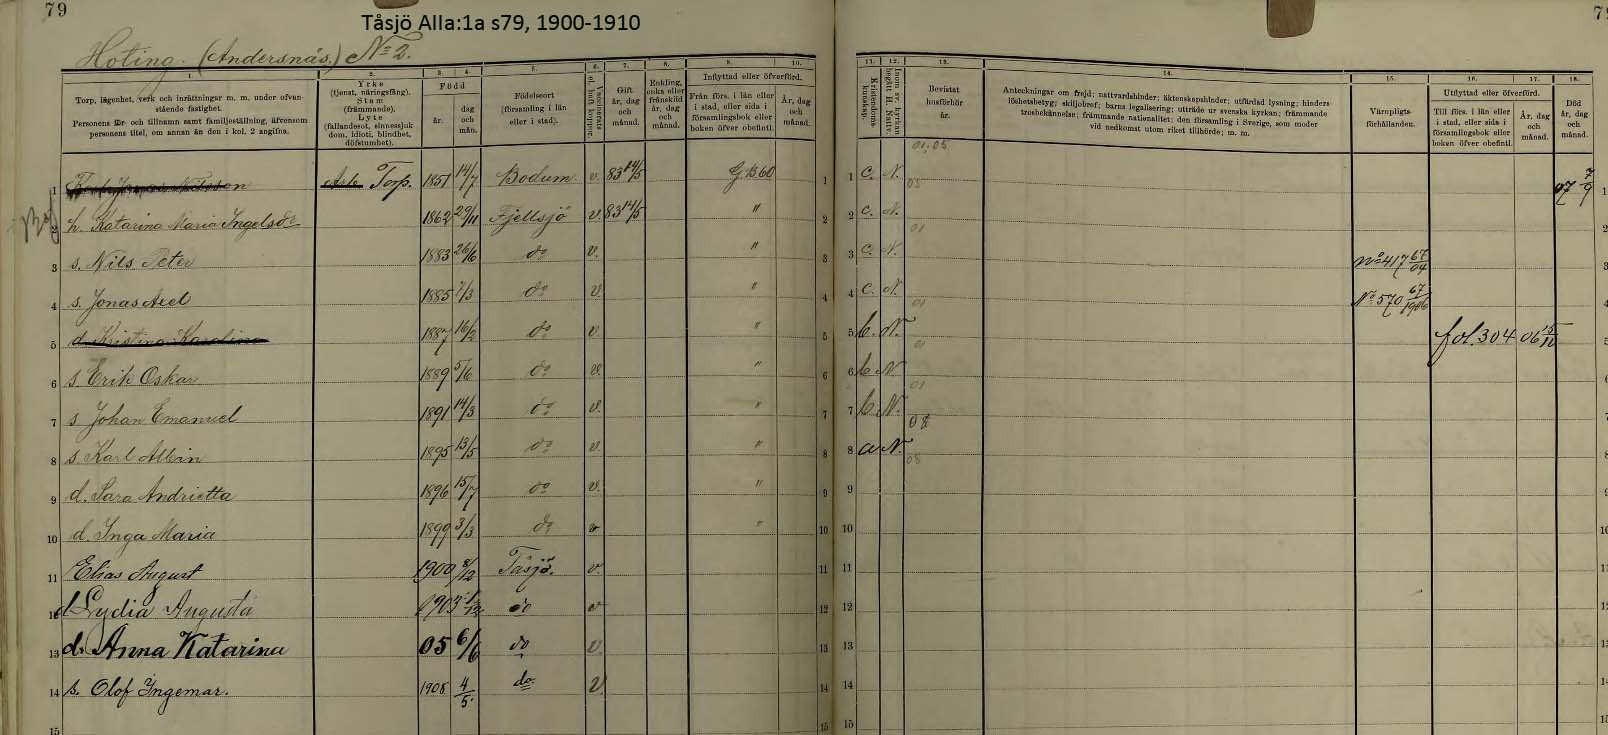 79
Tåsjö Alla:1a s79, 1900-1910
Hoting. (Andersnäs.) No 2.
1. 2. 3. 4. 5. 6. 7. 8. 9. 10.
Torp, lägenhet, verk och inrättningar m. m. under ofvanstående fastighet.
Personens för- och tillnamn samt familjeställning, äfvensom personens titel, om annan än den i kol. 2 angifna.
Yrke
(tjenst, näringsfång).
Stam
(främmande).
Lyte
(fallandesot, sinnessjukdom, idioti, blindhet, döfstumhet).
Född
år.
dag och mån.
Födelseort
(församling i län eller i stad).
Gift
år, dag och månad.
Enkling, enka eller frånskild år, dag och månad.
Inflyttad eller öfverförd.
Från förs. i län eller i stad, eller sida i församlingsbok eller boken öfver obefintl.
År, dag och månad.
1 Karl Jonas Nilsson Arb. Torp. 1851 14/7 Bodum v. 83 14/5 G.B.60 1
2 h. Katarina Maria Ingelsdr 1862 29/11 Fjellsjö v. 83 14/5 " 2
3 s. Nils Peter 1883 26/6 do v. " 3
4 s. Jonas Axel 1885 7/3 do v. " 4
5 d. Kristina Karolina 1887 16/2 do v " 5
6 s. Erik Oskar 1889 5/6 do v. " 6
7 s Johan Emanuel 1891 14/3 do v. " 7
8 s. Karl Albin 1895 13/5 do v. " 8
9 d. Sara Andrietta 1896 15/7 do v. " 9
10 d. Inga Maria 1899 3/3 do v " 10
11 Elias August 1900 8/12 Tåsjö. v. 11
12 d Lydia Augusta 1903 do v 12
13 d. Anna Katarina 05 6/6 do v. 13
14 s. Olof Ingemar. 1908 4/5. do v. 14
15 15
11. 12. 13. 14. 15. 16. 17. 18.
Kristendomskunskap.
Inom sv. kyrkan begått H. Nattv.
Bevistat husförhör år.
Anteckningar om frejd; nattvardshinder; äktenskapshinder; utfärdad lysning; hinders löshetsbetyg; skiljobref; barns legalisering; utträde ur svenska kyrkan; främmande trosbekännelse; främmande nationalitet; den församling i Sverige, som moder vid nedkomst utom riket tillhörde; m. m.
Värnpligtsförhållanden.
Utflyttad eller öfverförd.
Till förs. i län eller i stad, eller sida i församlingsbok eller boken öfver obefintl.
År, dag och månad.
Död år, dag och månad.
01; 05
1 C. N. 05 07 7/9 1
2 C. N. 01 2
3 C N. No 417 67/04 3
4 C. N. 01 No 570 67/1906 4
5 b. N. 01 fol. 304 06 15/10 5
6 b N. 01
7 b N. 08
8 a N. 08
9
10
11
12
13
14
15